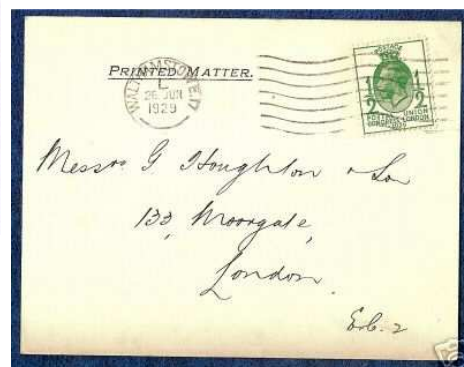 PRINTED MATTER.
WALTHAMSTOW E.17
L
26 JUN
1929
POSTAGE
1 1
2 2
POSTAL UNION
CONGRESS LONDON
Messrs G Houghton & Son
133, Moorgate,
London.
E.C. 2